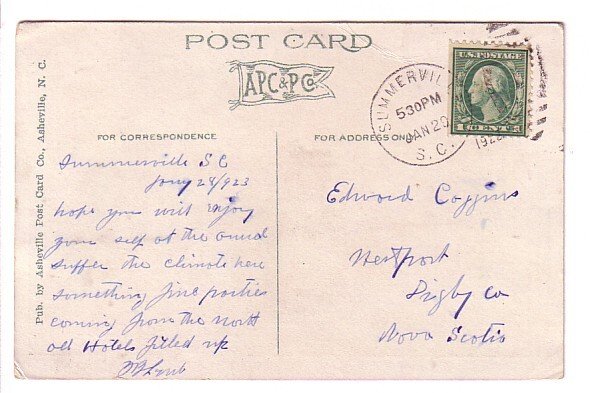 POST CARD
APC&PCo
Pub. by Asheville Post Card Co., Asheville, N. C.
FOR CORRESPONDENCE
FOR ADDRESS ONLY
SUMMERVILLE
530PM
JAN 20
S. C.
U.S. POSTAGE
1 CENT 1
Summerville SC
hope you will enjoy
your self at the
supper the climate here
something fine parties
coming from the north
all Hotels filled up
Edward Coggins
Westport
Digby Co
Nova Scotia